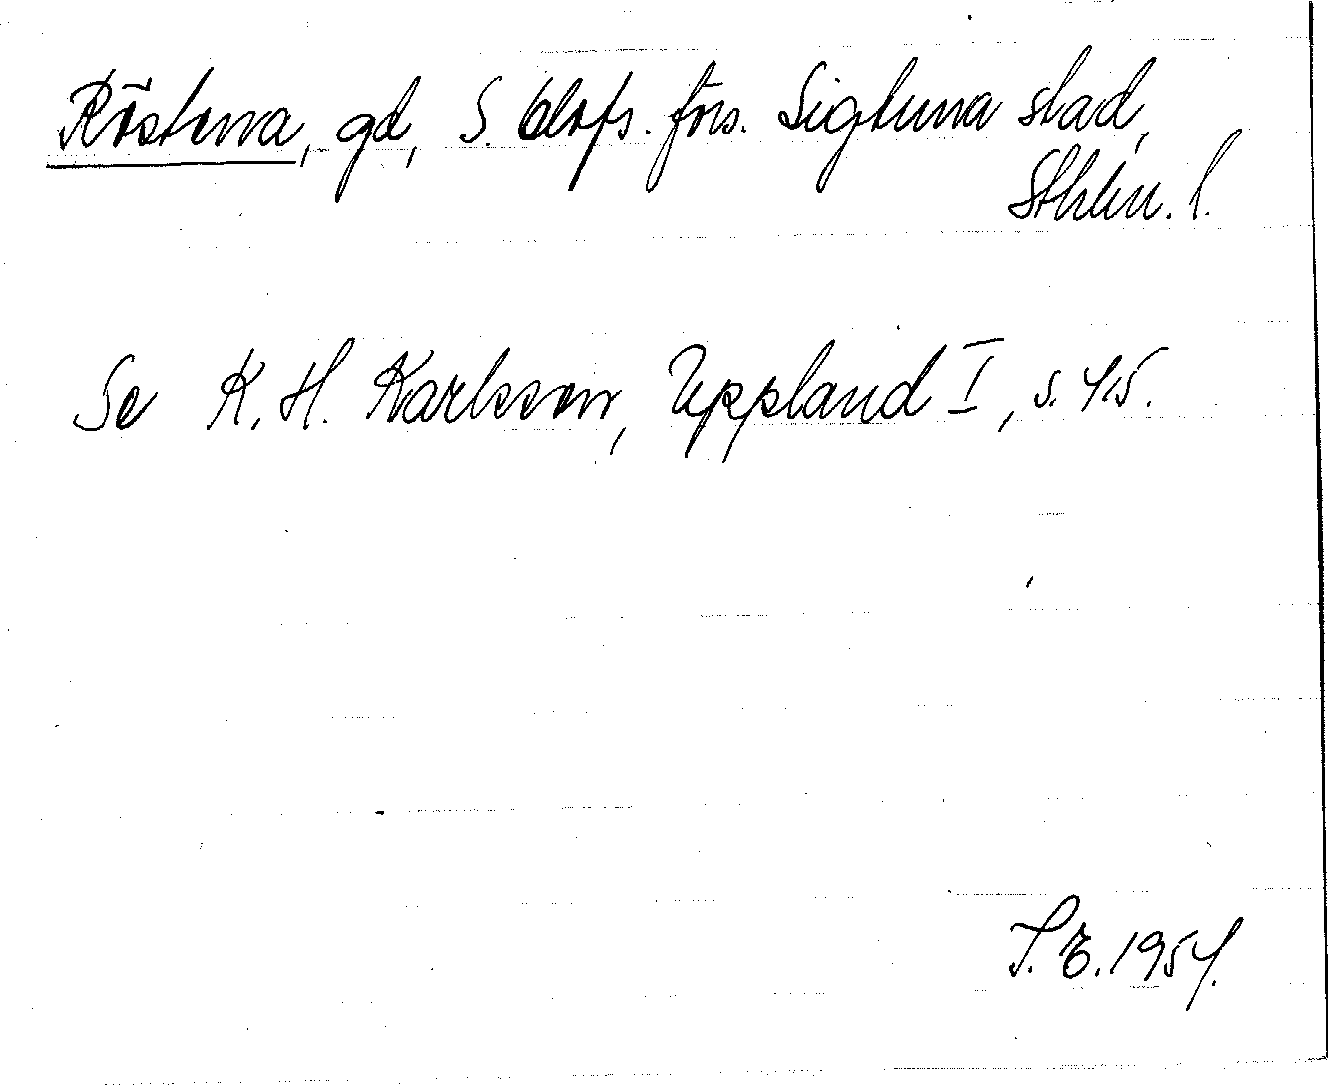 Röstena, gd, S. Olofs. förs. Sigtuna stad,
Sthlm. l.
Se K. H. Karlsson, Uppland I, s. 45.
S. E. 1954.